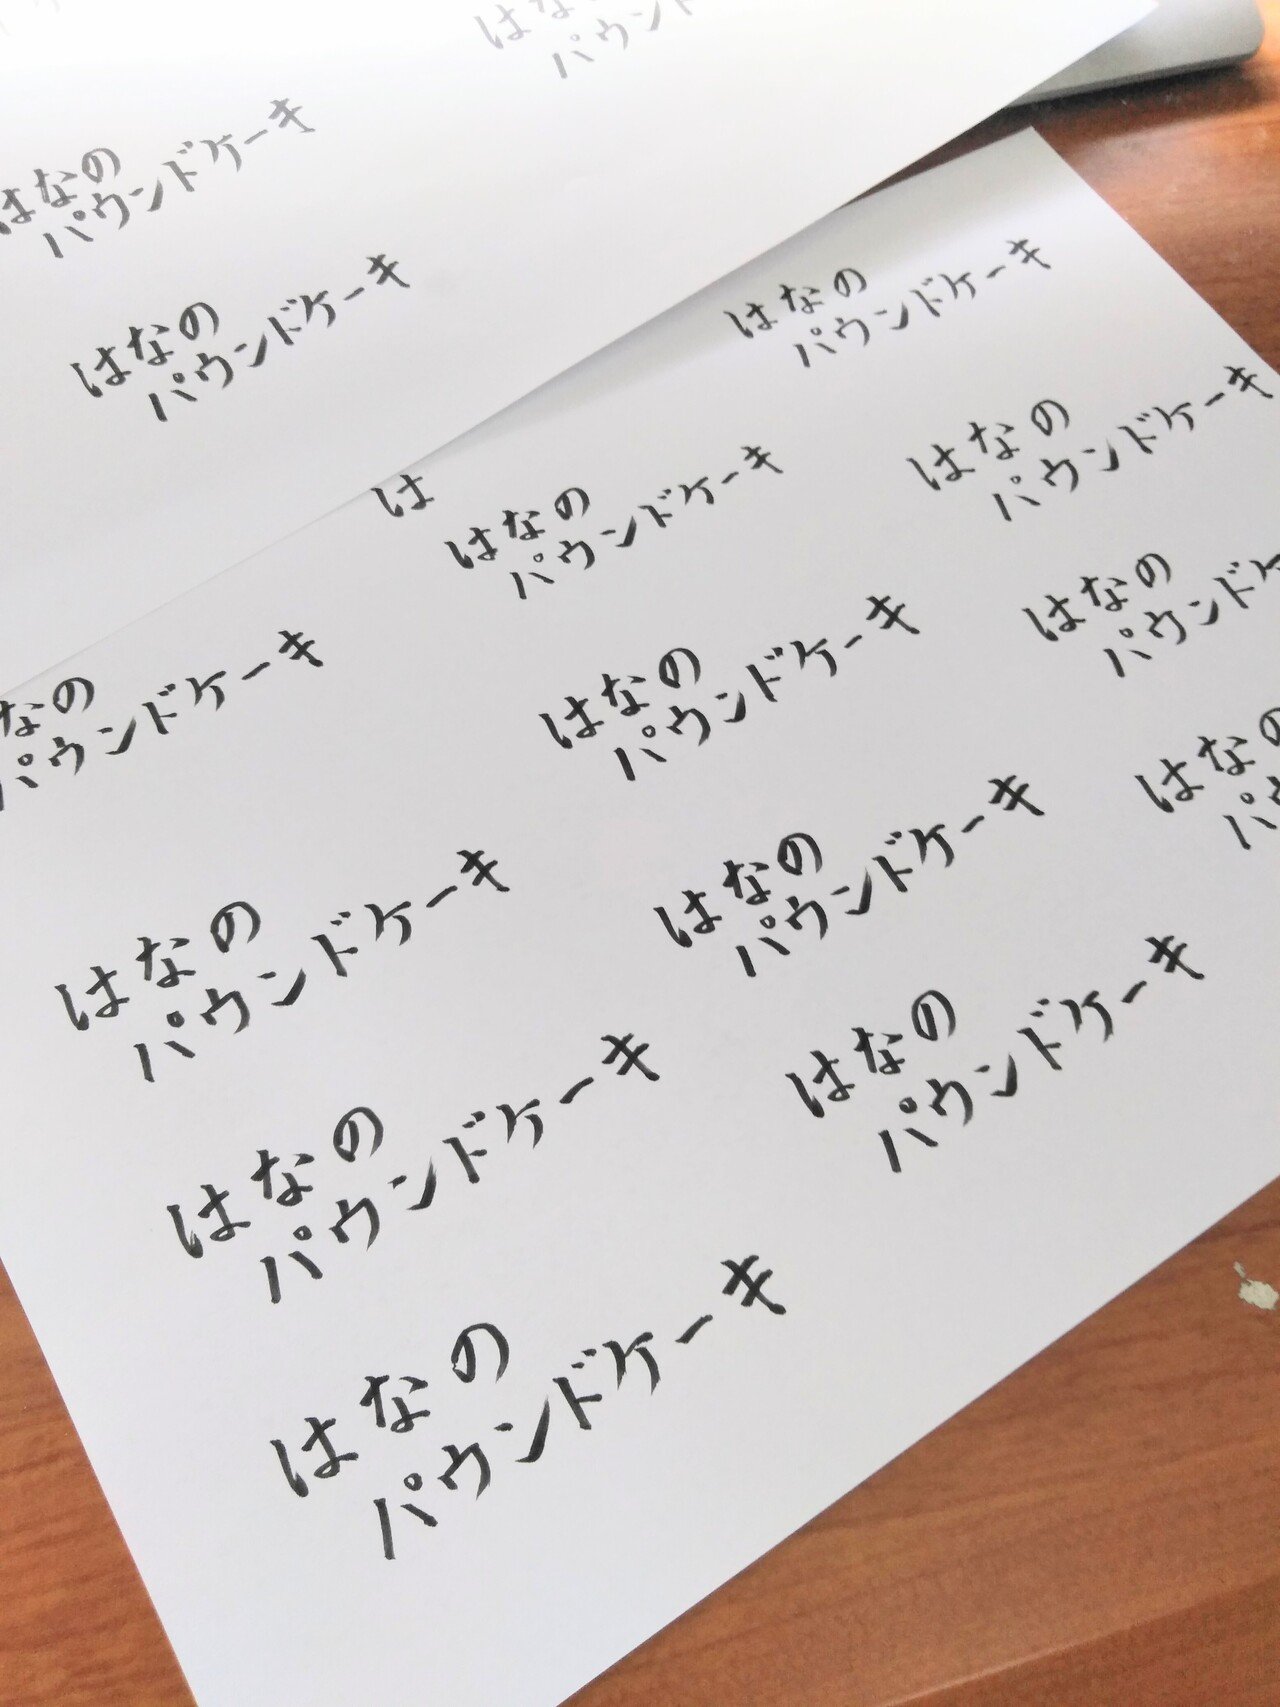 はな
パウン
はなの
パウンドケーキ
はなの
パウンドケーキ
はなの
パウンドケーキ
はなの
パウンドケーキ
は
はなの
パウンドケーキ
はなの
パウンドケ
なの
パウンドケーキ
はなの
パウンドケーキ
はなの
パ
はなの
パウンドケーキ
はなの
パウンドケーキ
はなの
パウンドケーキ
はなの
パウンドケーキ
はなの
パウンドケーキ